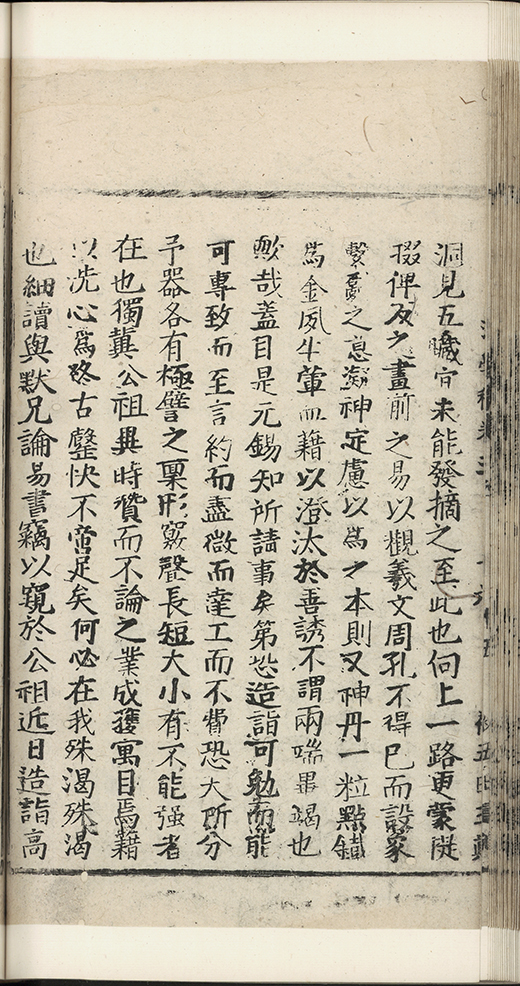 洞見五臟官未能發摘之至此也向上一路更蒙提
掇俾反之畫前之易以觀羲文周孔不得已而設象
繫爻之息凝神定慮以為之本則又神丹一粒點鐵
為金夙牛葷血藉以澄汰於善誘不謂兩端畢竭也
歟哉蓋目是元錫知所請事矣第恐造詣可勉而能
可專致而至言約而盡微而達工而不費恐大所分
予器各有極譬之稟形竅聲長短大小有不能强者
在也獨冀公祖異時贊而不論之業成獲寓目焉藉
以洗心為終古盤快不啻足矣何必在我殊渴殊渴
也細讀與默兄論易書竊以窺於公祖近日造詣高